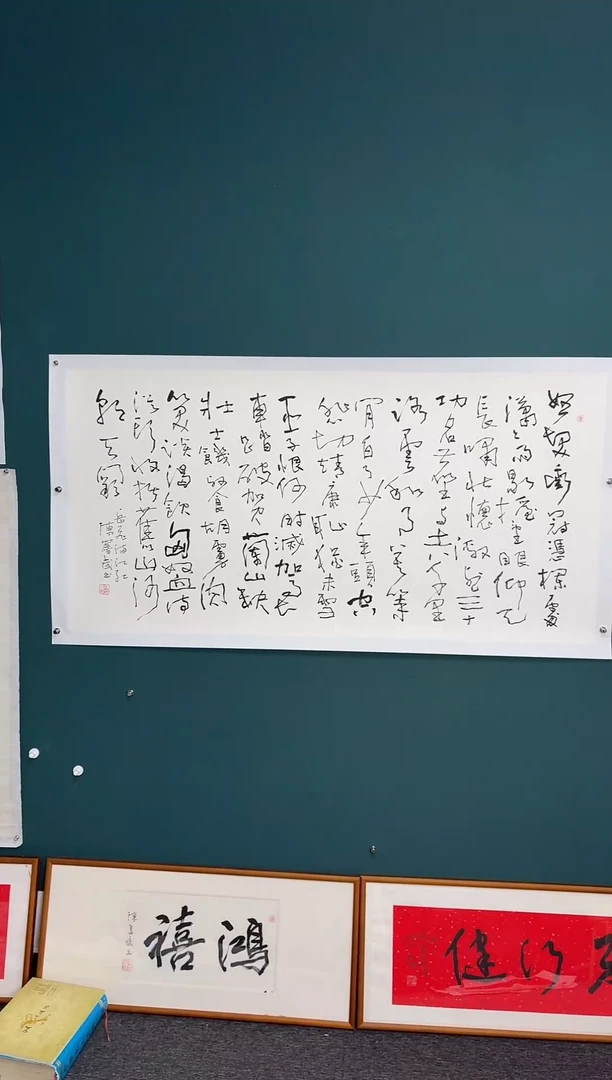 怒髮衝冠憑欄處
瀟瀟雨歇抬望眼仰天
長嘯壯懷激烈三十
功名塵與土八千里
路雲和月莫等
閒白了少年頭空
悲切靖康恥猶未雪
臣子恨何時滅駕長
車踏破賀蘭山缺
壯士飢食胡虜肉
笑談渴飲匈奴血待
從頭收拾舊山河
朝天闕
岳飛滿江紅
鴻禧
行健